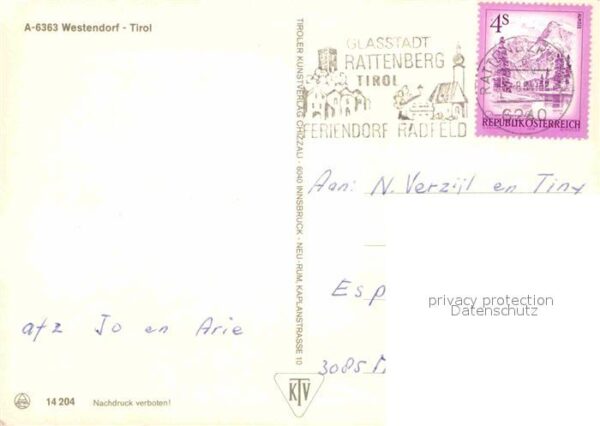 A-6363 Westendorf - Tirol
GLASSTADT
RATTENBERG
TIROL
FERIENDORF RADFELD
4S
REPUBLIK ÖSTERREICH
RATTENBERG
6240
TIROLER KUNSTVERLAG CHIZZALI - 6040 INNSBRUCK - NEU-RUM, KAPLANSTRASSE 10
Aan: N. Verzijl en Tiny
Esp
privacy protection
Datenschutz
afz Jo en Arie
3085
KTV
14 204 Nachdruck verboten!